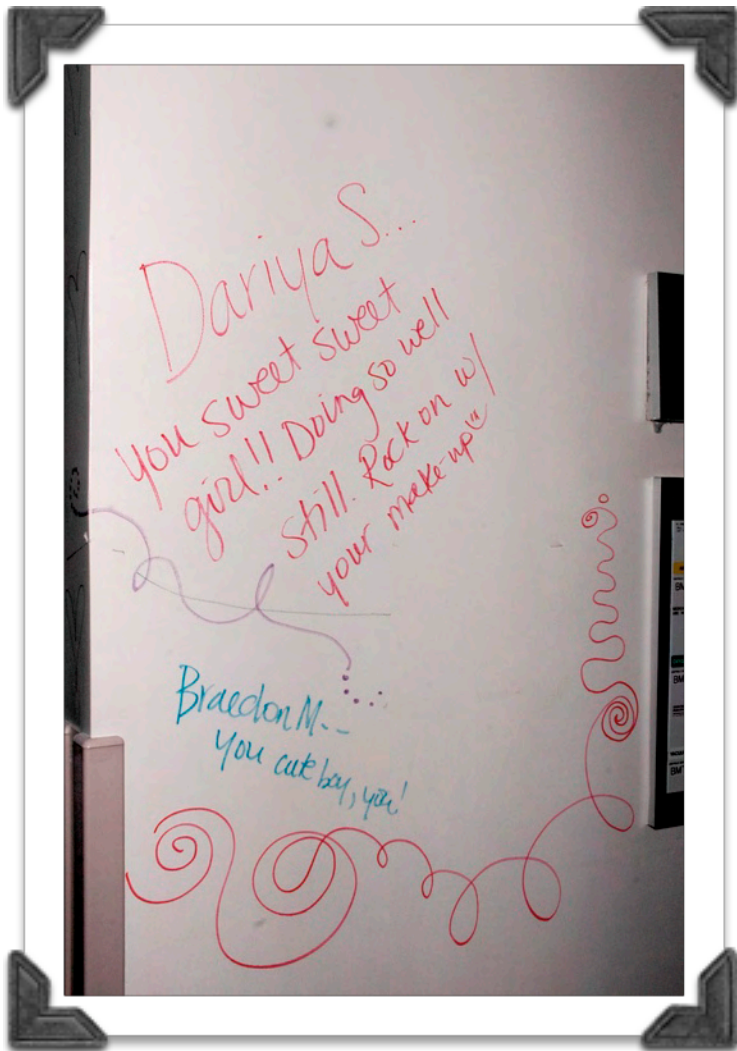 Dariya S...
you sweet sweet
girl!! Doing so well
still. Rock on w/
your make-up
Braedon M--
you cute boy, you!
BM
BM
BM